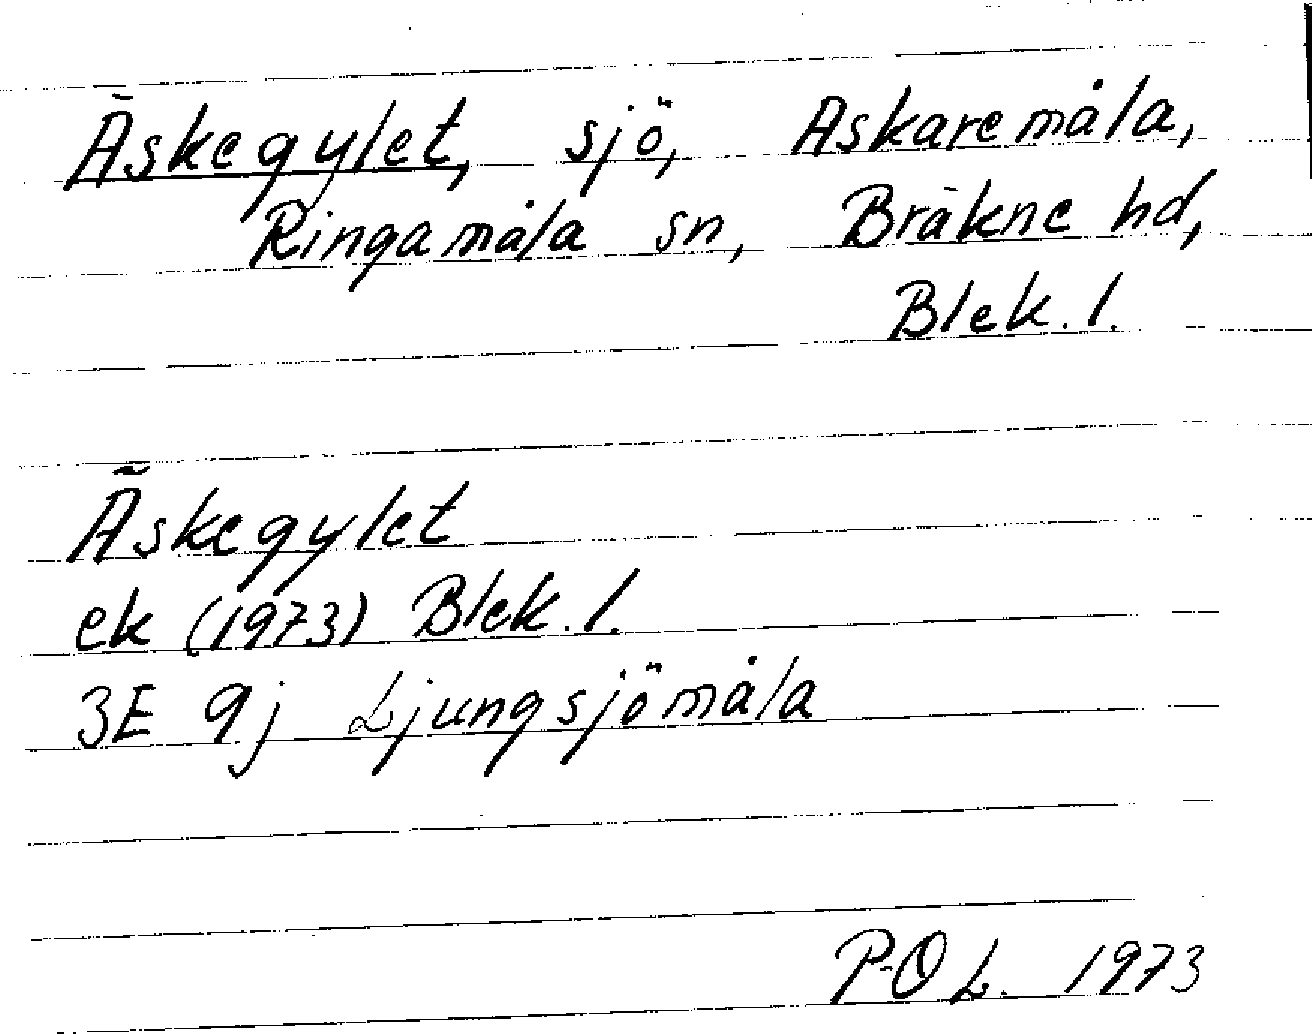 Äskegylet, sjö, Askaremåla,
Ringamåla sn, Bräkne hd,
Blek. l.
Äskegylet
ek (1973) Blek. l.
3E 9j Ljungsjömåla
P-O L. 1973